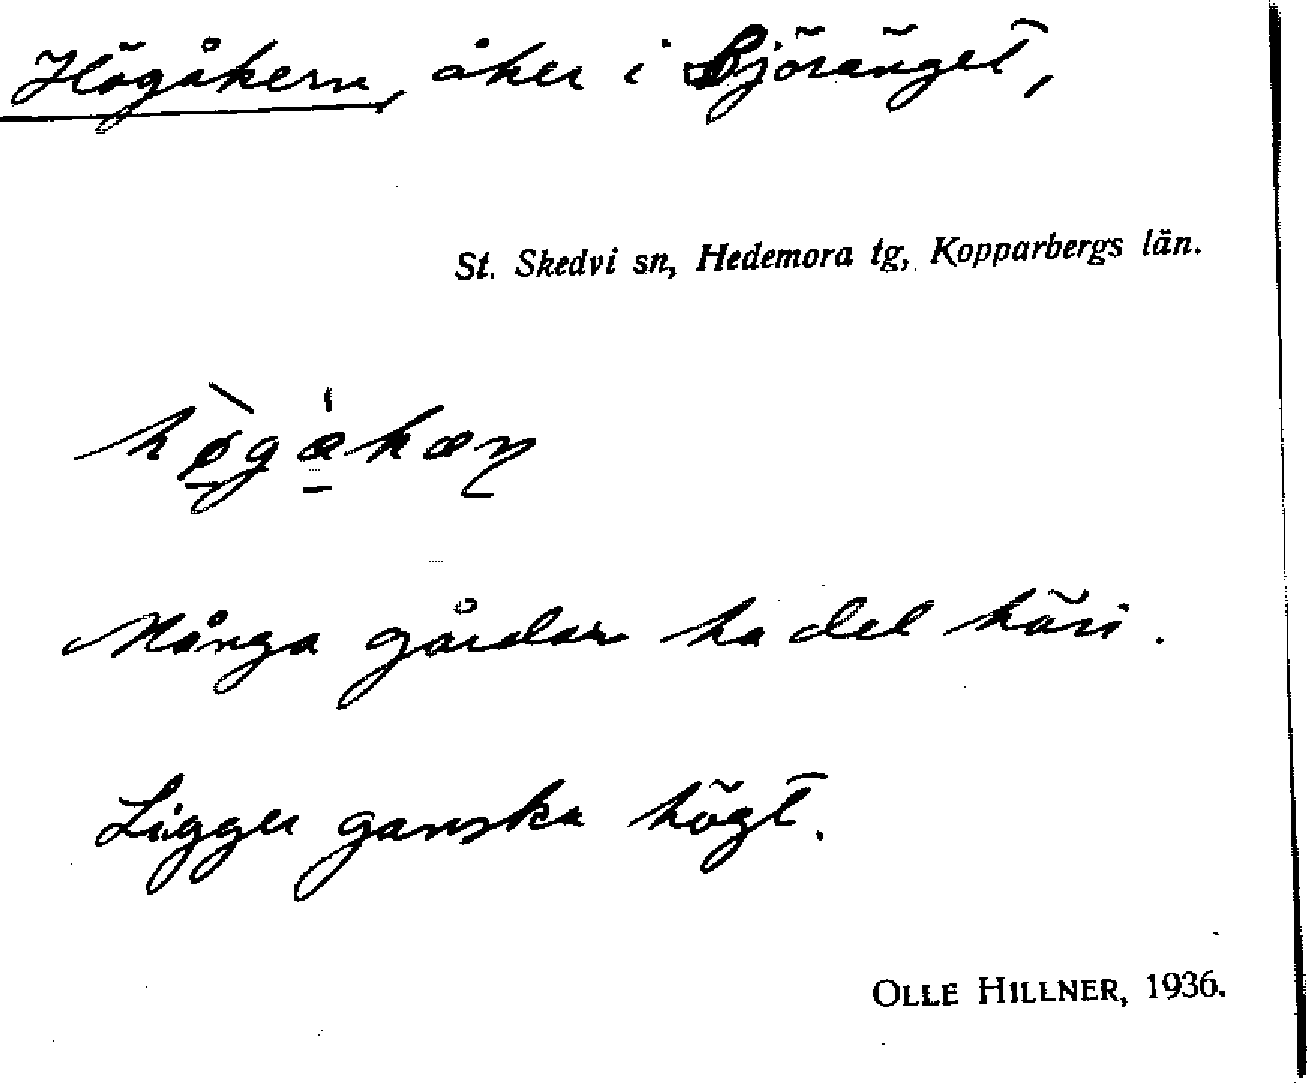 Högåkern, åker i Björänget,
St. Skedvi sn, Hedemora tg, Kopparbergs län.
Många gårdar ha del häri.
Ligger ganska högt.
OLLE HILLNER, 1936.